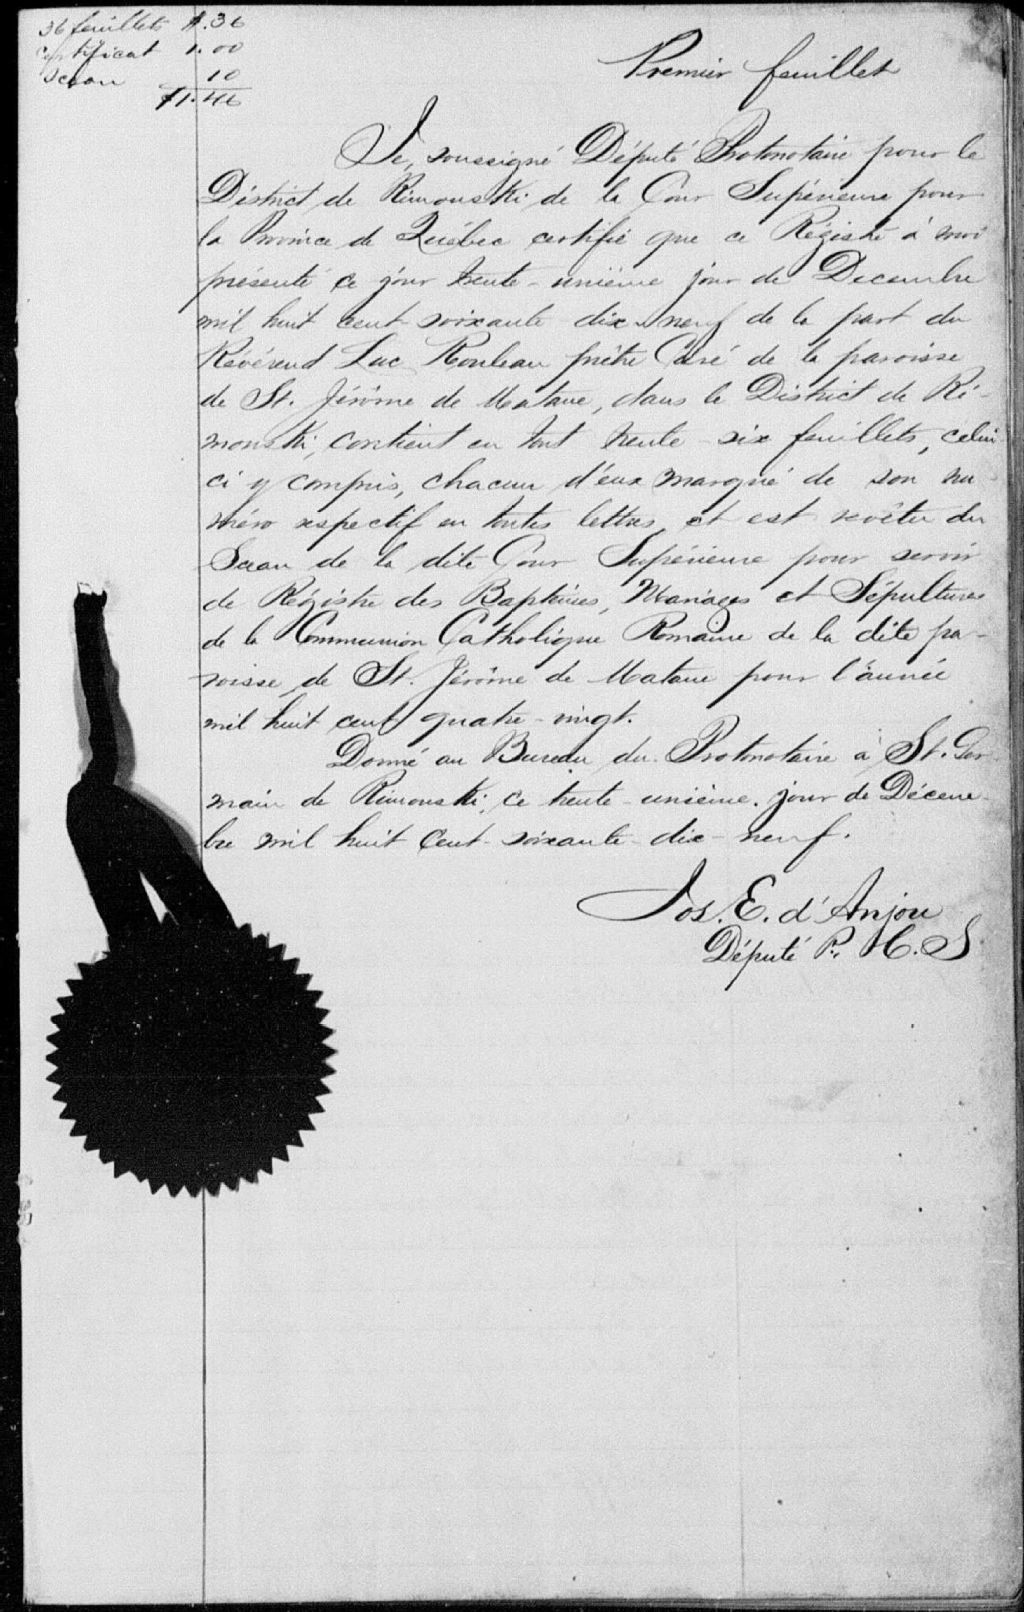 36 feuillets $.36
Certificat 1.00
Sceau 10
$1.46
Premier feuillet
Je, soussigné Député Protonotaire pour le
District de Rimouski de la Cour Supérieure pour
la Province de Québec certifie que ce Régistre à moi
présenté ce jour trente-unième jour de Decembre
mil huit cent soixante-dix-neuf de la part du
Revérend Luc Rouleau prêtre Curé de la paroisse
de St. Jérôme de Matane, dans le District de Ri-
mouski, contient en tout trente-six feuillets, celui
ci y compris, chacun d'eux marqué de son nu-
méro respectif en toutes lettres, et est revêtu du
Sceau de la dite Cour Supérieure pour servir
de Régistre des Baptêmes, Mariages et Sépultures
de la Communion Catholique Romaine de la dite pa-
roisse de St. Jérôme de Matane pour l'année
mil huit cent quatre-vingt.
Donné au Bureau du Protonotaire à St. Ger-
main de Rimouski, ce trente-unième jour de Décem-
bre mil huit cent soixante-dix-neuf.
Jos. E. d'Anjou
Député P. C. S